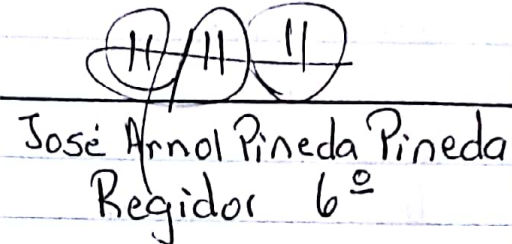 José Arnol Pineda Pineda
Regidor 6º